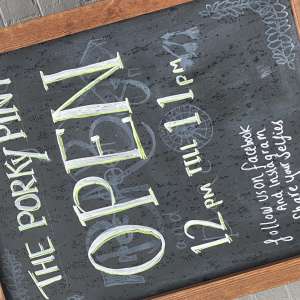 THE PORKY PINT
OPEN
12 PM TILL 11 PM
follow us on facebook
And Instagram
Share your Selfies